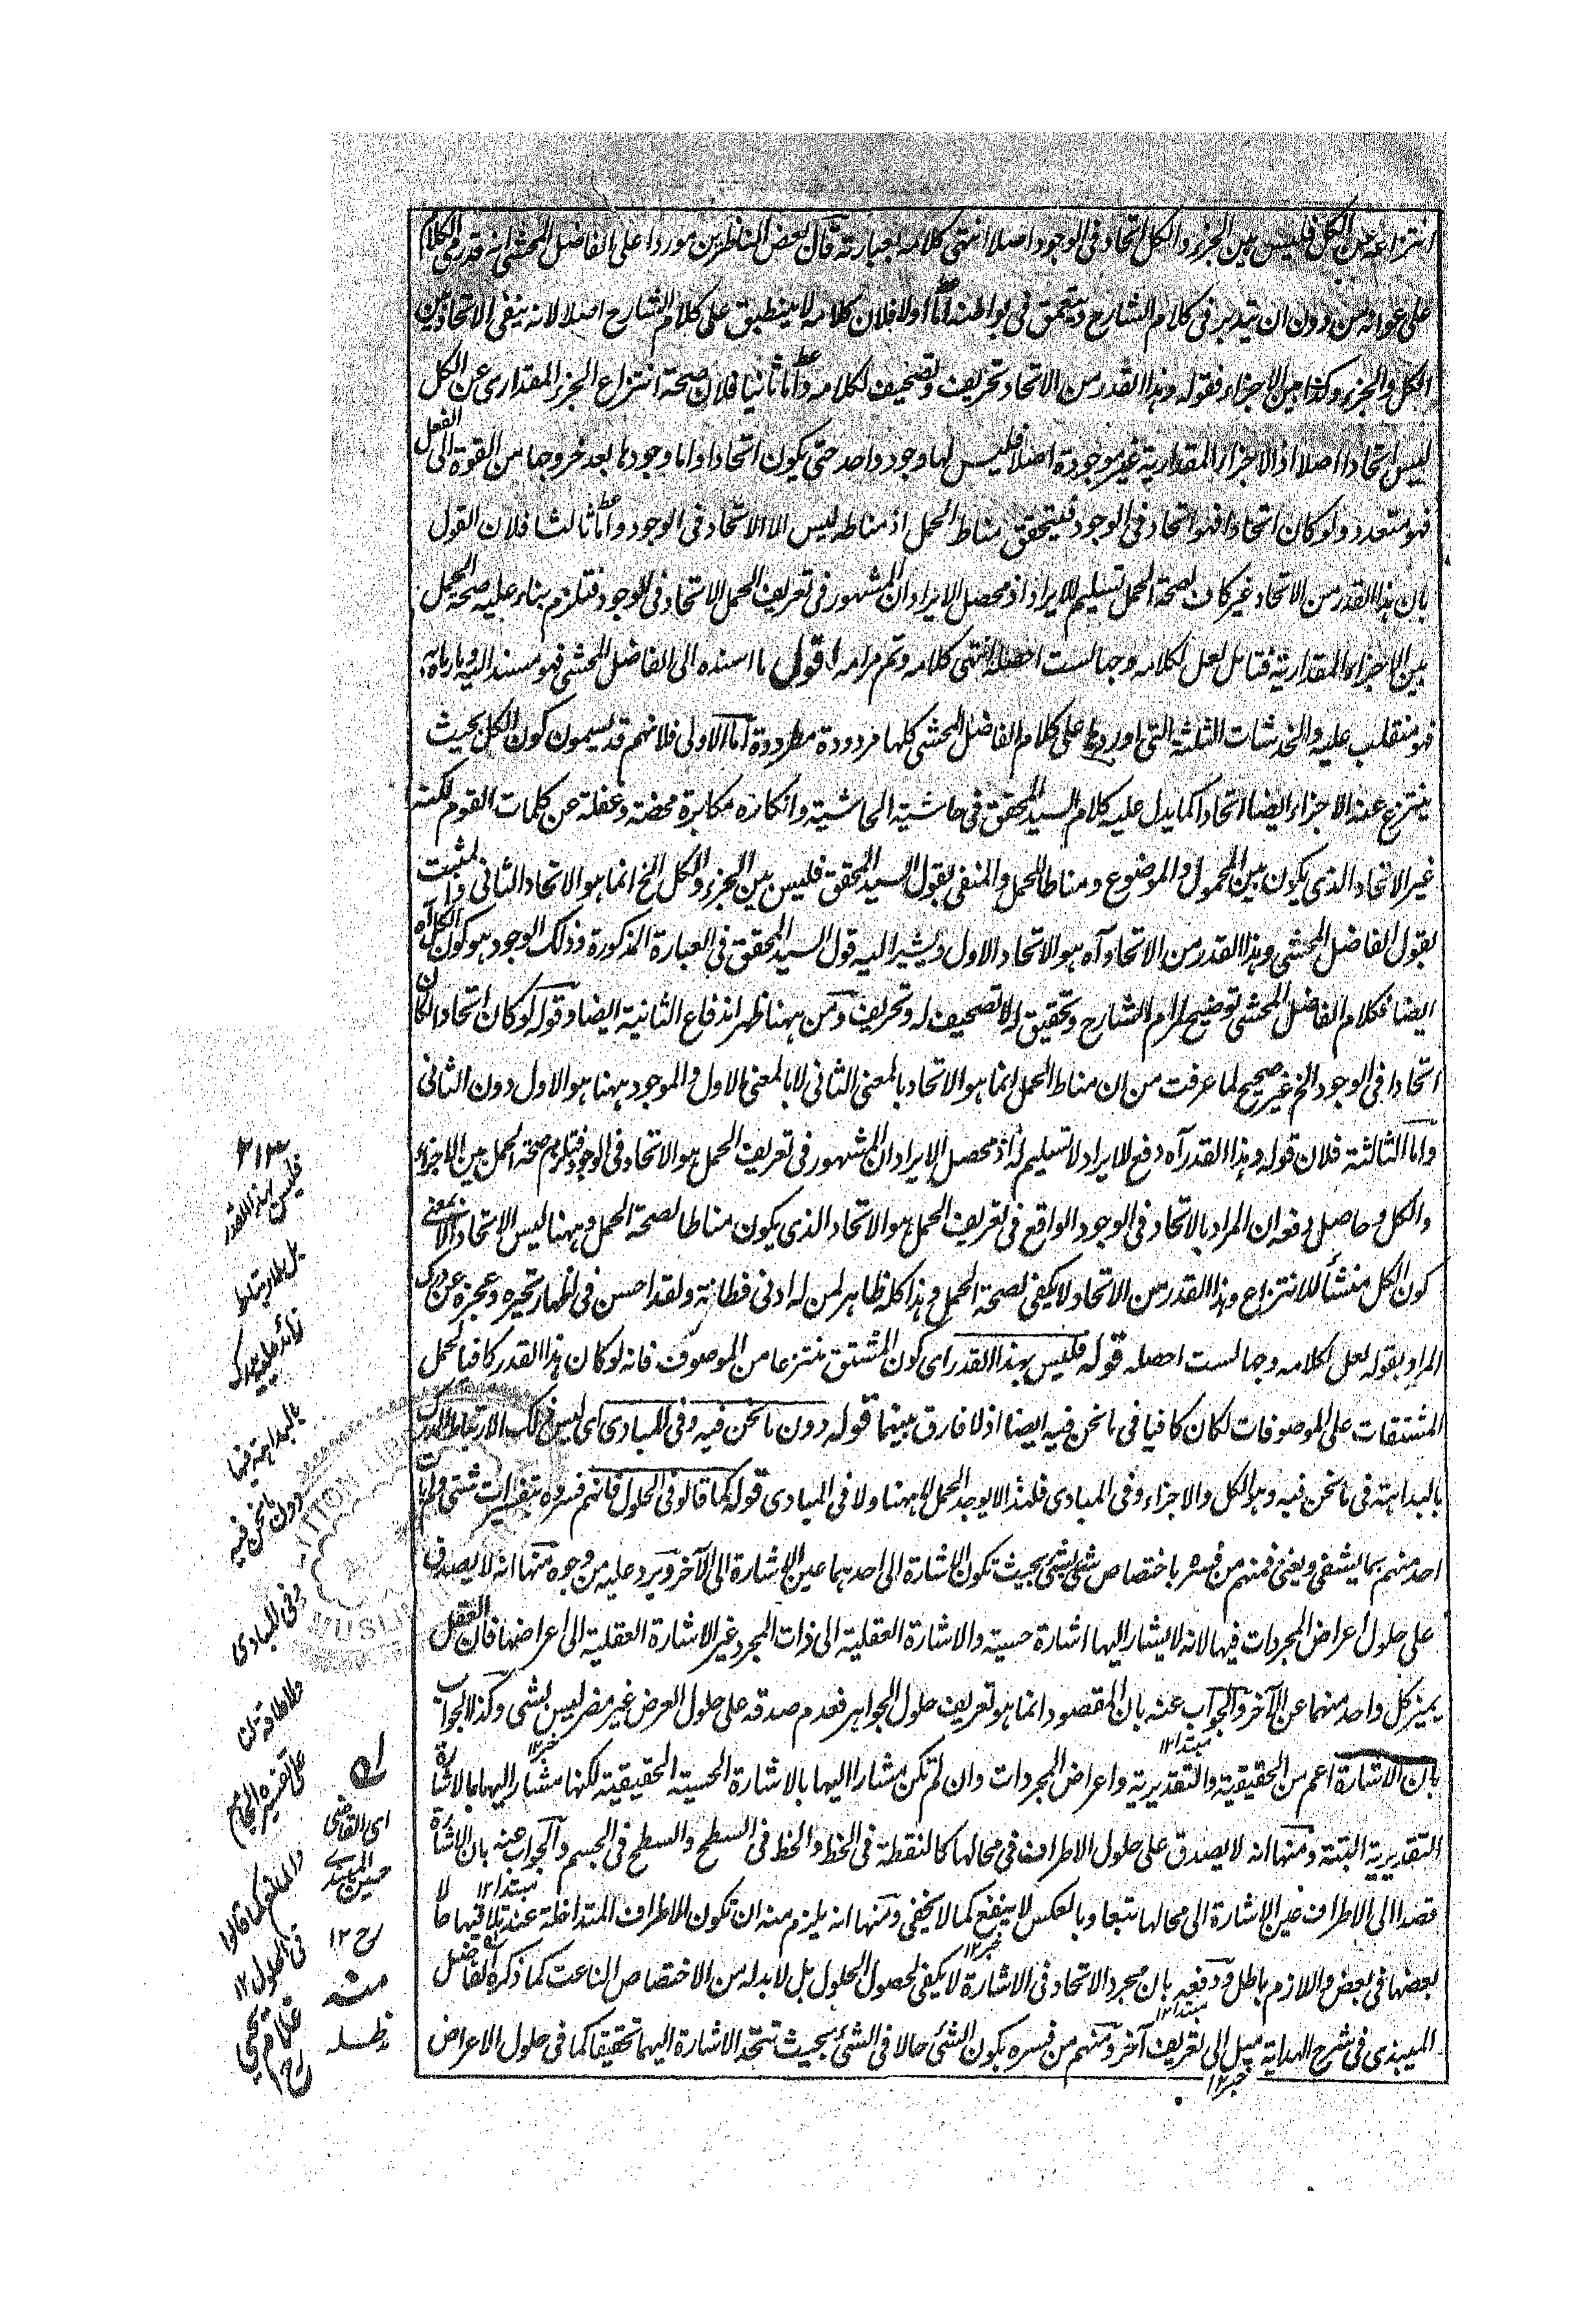 انتزاعه عن الكل فليس بين الجزء والكل اتحاد فى الوجود اصلا انتهى كلامه بعبارته قال بعض الناظرين موردا على الفاضل المحشى انه قدرمى الكلام
على عواهنه من دون ان يتدبر فى كلام الشارح ويتعمق فى بواطنه اما اولا فلان كلامه لا ينطبق على كلام الشارح اصلا لانه ينفى الاتحاد بين
الكل والجزء وكذا بين الاجزاء فقوله وهذا القدر من الاتحاد تحريف وتصحيف لكلامه واما ثانيا فلان صحة انتزاع الجزء المقدارى عن الكل
ليس اتحادا اصلا اذ الاجزاء المقدارية غير موجودة اصلا فليس لها وجود واحد حتى يكون اتحادا واما وجودها بعد خروجها من القوة الى الفعل
فهو متعدد ولو كان اتحادا فهو اتحاد فى الوجود فيتحقق مناط الحمل اذ مناطه ليس الا الاتحاد فى الوجود واما ثالثا فلان القول
بان هذا القدر من الاتحاد غير كاف لصحة الحمل تسليم للايراد اذ محصل الايراد ان المشهور فى تعريف الحمل الاتحاد فى الوجود فتلزم بناء عليه صحة الحمل
بين الاجزاء المقدارية فتامل لعل لكلامه وجها لست احصله انتهى كلامه وتم مرامه اقول ما اسنده الى الفاضل المحشى فهو مسند اليه وما رماه به
فهو منقلب عليه والخدشات الثلثة التى اوردها على كلام الفاضل المحشى كلها مردودة مطرودة اما الاولى فلانهم قد يسمون كون الكل بحيث
ينتزع عنه الاجزاء ايضا اتحادا كما يدل عليه كلام السيد المحقق فى حاشية الحاشية وانكاره مكابرة محضة وغفلة عن كلمات القوم لكنه
غير الاتحاد الذى يكون بين المحمول والموضوع ومناطا للحمل والمنفى بقول السيد المحقق فليس بين الجزء والكل الخ انما هو الاتحاد الثانى والمثبت
بقول الفاضل المحشى وهذا القدر من الاتحاد آه هو الاتحاد الاول ويشير اليه قول السيد المحقق فى العبارة المذكورة وذلك الوجود هو كون الكل آه
ايضا فكلام الفاضل المحشى توضيح لمرام الشارح وتحقيق له لا تصحيف له وتحريف ومن ههنا ظهر اندفاع الثانية ايضا وقوله لو كان اتحادا لكان
اتحادا فى الوجود الخ غير صحيح لما عرفت من ان مناط الحمل انما هو الاتحاد بالمعنى الثانى لا بالمعنى الاول والموجود ههنا هو الاول دون الثانى
واما الثالثة فلان قوله وهذا القدر آه دفع للايراد لا تسليم له اذ محصل الايراد ان المشهور فى تعريف الحمل هو الاتحاد فى الوجود فتلزم صحة الحمل بين الاجزاء
والكل وحاصل دفعه ان المراد بالاتحاد فى الوجود الواقع فى تعريف الحمل هو الاتحاد الذى يكون مناطا لصحة الحمل وههنا ليس الاتحاد الا بمعنى
كون الكل منشأ للانتزاع وهذا القدر من الاتحاد لا يكفى لصحة الحمل وهذا كله ظاهر لمن له ادنى فطانة ولقد احسن فى اظهار تحيره وعجزه عن درك
المراد بقوله لعل لكلامه وجها لست احصله قوله فليس بهذا القدر اى كون المشتق منتزعا من الموصوف فانه لو كان هذا القدر كافيا لحمل
المشتقات على الموصوفات لكان كافيا فى ما نحن فيه ايضا اذ لا فارق بينهما قوله دون ما نحن فيه وفى المبادى اى ليس ذلك الارتباط المدرك
بالبداهة فى ما نحن فيه وهو الكل والاجزاء وفى المبادى فلهذا لا يوجد الحمل لا ههنا ولا فى المبادى قوله كما قالوا فى الحلول فانهم فسروه بتفسيرات شتى ولم يات
احد منهم بما يشفى ويغنى فمنهم من فسره باختصاص شئ بشئ بحيث تكون الاشارة الى احدهما عين الاشارة الى الآخر ويرد عليه من وجوه منها انه لا يصدق
على حلول اعراض المجردات فيها لانه لا يشار اليها اشارة حسية والاشارة العقلية الى ذات المجرد غير الاشارة العقلية الى اعراضها فان العقل
يميز كل واحد منهما عن الآخر والجواب عنه بان المقصود انما هو تعريف حلول الجواهر فعدم صدقه على حلول العرض غير مضر ليس بشى وكذا الجواب
مبتدا١٢ خبر١٢
بان الاشارة اعم من الحقيقية والتقديرية واعراض المجردات وان لم تكن مشارا اليها بالاشارة الحسية الحقيقية لكنها مشار اليها بالاشارة
التقديرية البتة ومنها انه لا يصدق على حلول الاطراف فى محالها كالنقطة فى الخط والخط فى السطح والسطح فى الجسم والجواب عنه بان الاشارة
مبتدا١٢
قصدا الى الاطراف عين الاشارة الى محالها تبعا وبالعكس لا ينفع كما لا يخفى ومنها انه يلزم منه ان تكون الاطراف المتداخلة عند تلاقيها حالا
خبر١٢
بعضها فى بعض واللازم باطل ودفعه بان مجرد الاتحاد فى الاشارة لا يكفى لحصول الحلول بل لا بد له من الاختصاص الناعت كما ذكره الفاضل
مبتدا١٢
الميبذى فى شرح الهداية ميل الى تعريف آخر ومنهم من فسره بكون الشئ حالا فى الشئ بحيث تتحد الاشارة اليهما تحقيقا كما فى حلول الاعراض
خبر١٢
٣١٣
فليس بهذا القدر
بل بارتباط
زائد عليه يدرك
بالبداهة فيها
دون ما نحن فيه
وفى المبادى
ولا طاقة لنا
على تفسيره الجامع
والمانع كما قالوا
فى الحلول ١٢
غلام يحيى
رح ١٢
اى القاضى
حسين الميبذى
رح ١٢
منه
مد ظله